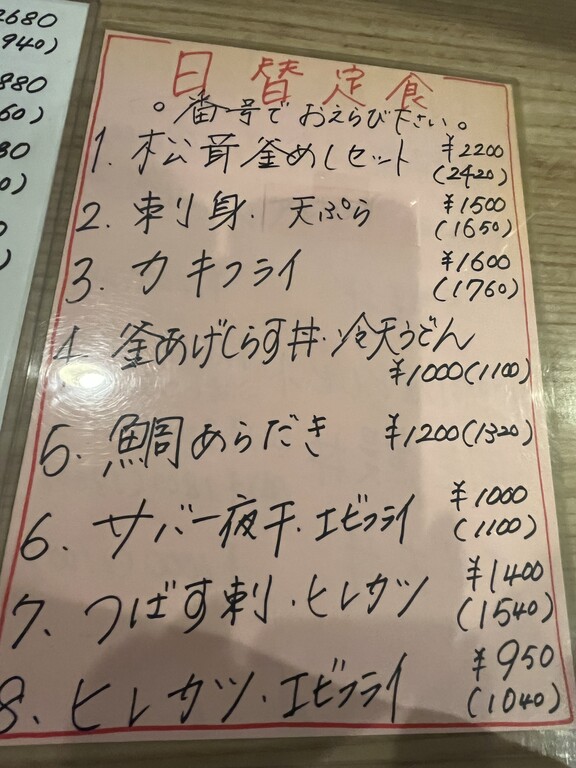 2680
940)
880
60)
80
0)
日替定食
。番号でおえらび下さい。
1. 松茸釜めしセット ¥2200
(2420)
2. 刺身. 天ぷら ¥1500
(1650)
3. カキフライ ¥1600
(1760)
4. 釜あげしらす丼・冷天うどん
¥1000(1100)
5. 鯛あらだき ¥1200(1320)
6. サバ一夜干.エビフライ ¥1000
(1100)
7. つばす刺.ヒレカツ ¥1400
(1540)
8. ヒレカツ.エビフライ ¥950
(1040)